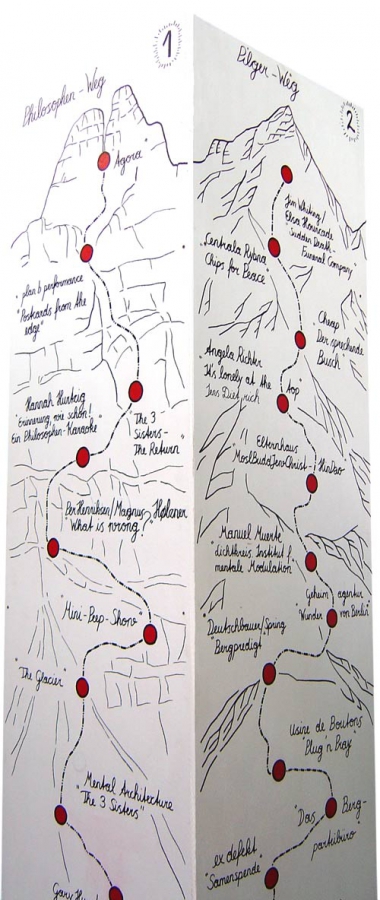 1
Philosophen-Weg
Agora
plan b performance
"Postcards from the
edge"
The 3
Sisters-
The Return"
Hannah Hurtzig
"Erinnerung wie schön!
Ein Philosophen-Karaoke"
Per Henriksen/Magnus
What is wrong?
Mini-Peep-Show
"The Glacier"
Mental Architecture
"The 3 Sisters"
Gary
2
Pilger-Weg
Jim Whiting/
Sudden Death
Funeral Company
Centrala Rybna
Chips for Peace"
Cheap
"Der sprechende
Busch"
Angela Richter
It's lonely at the top"
Jens Dietrich
Elternhaus
MoslBuddJewChrist-HinDao
Manuel Muerte
dichtkreis Institut f.
mentale Modulation"
Geheimagentur
"Wunder von Berlin"
Deutschbauer/Spring
"Bergpredigt"
Usine de Boutons
"Plug n Pray"
"Das Berg-
parteibüro
ex defekt
"Samenspende"